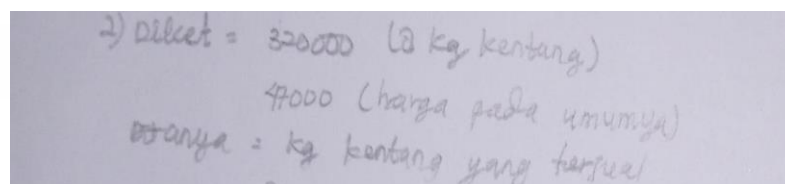 2) Diket = 320000 (@ kg kentang)
47000 (harga pada umumya)
Ditanya = kg kentang yang terjual